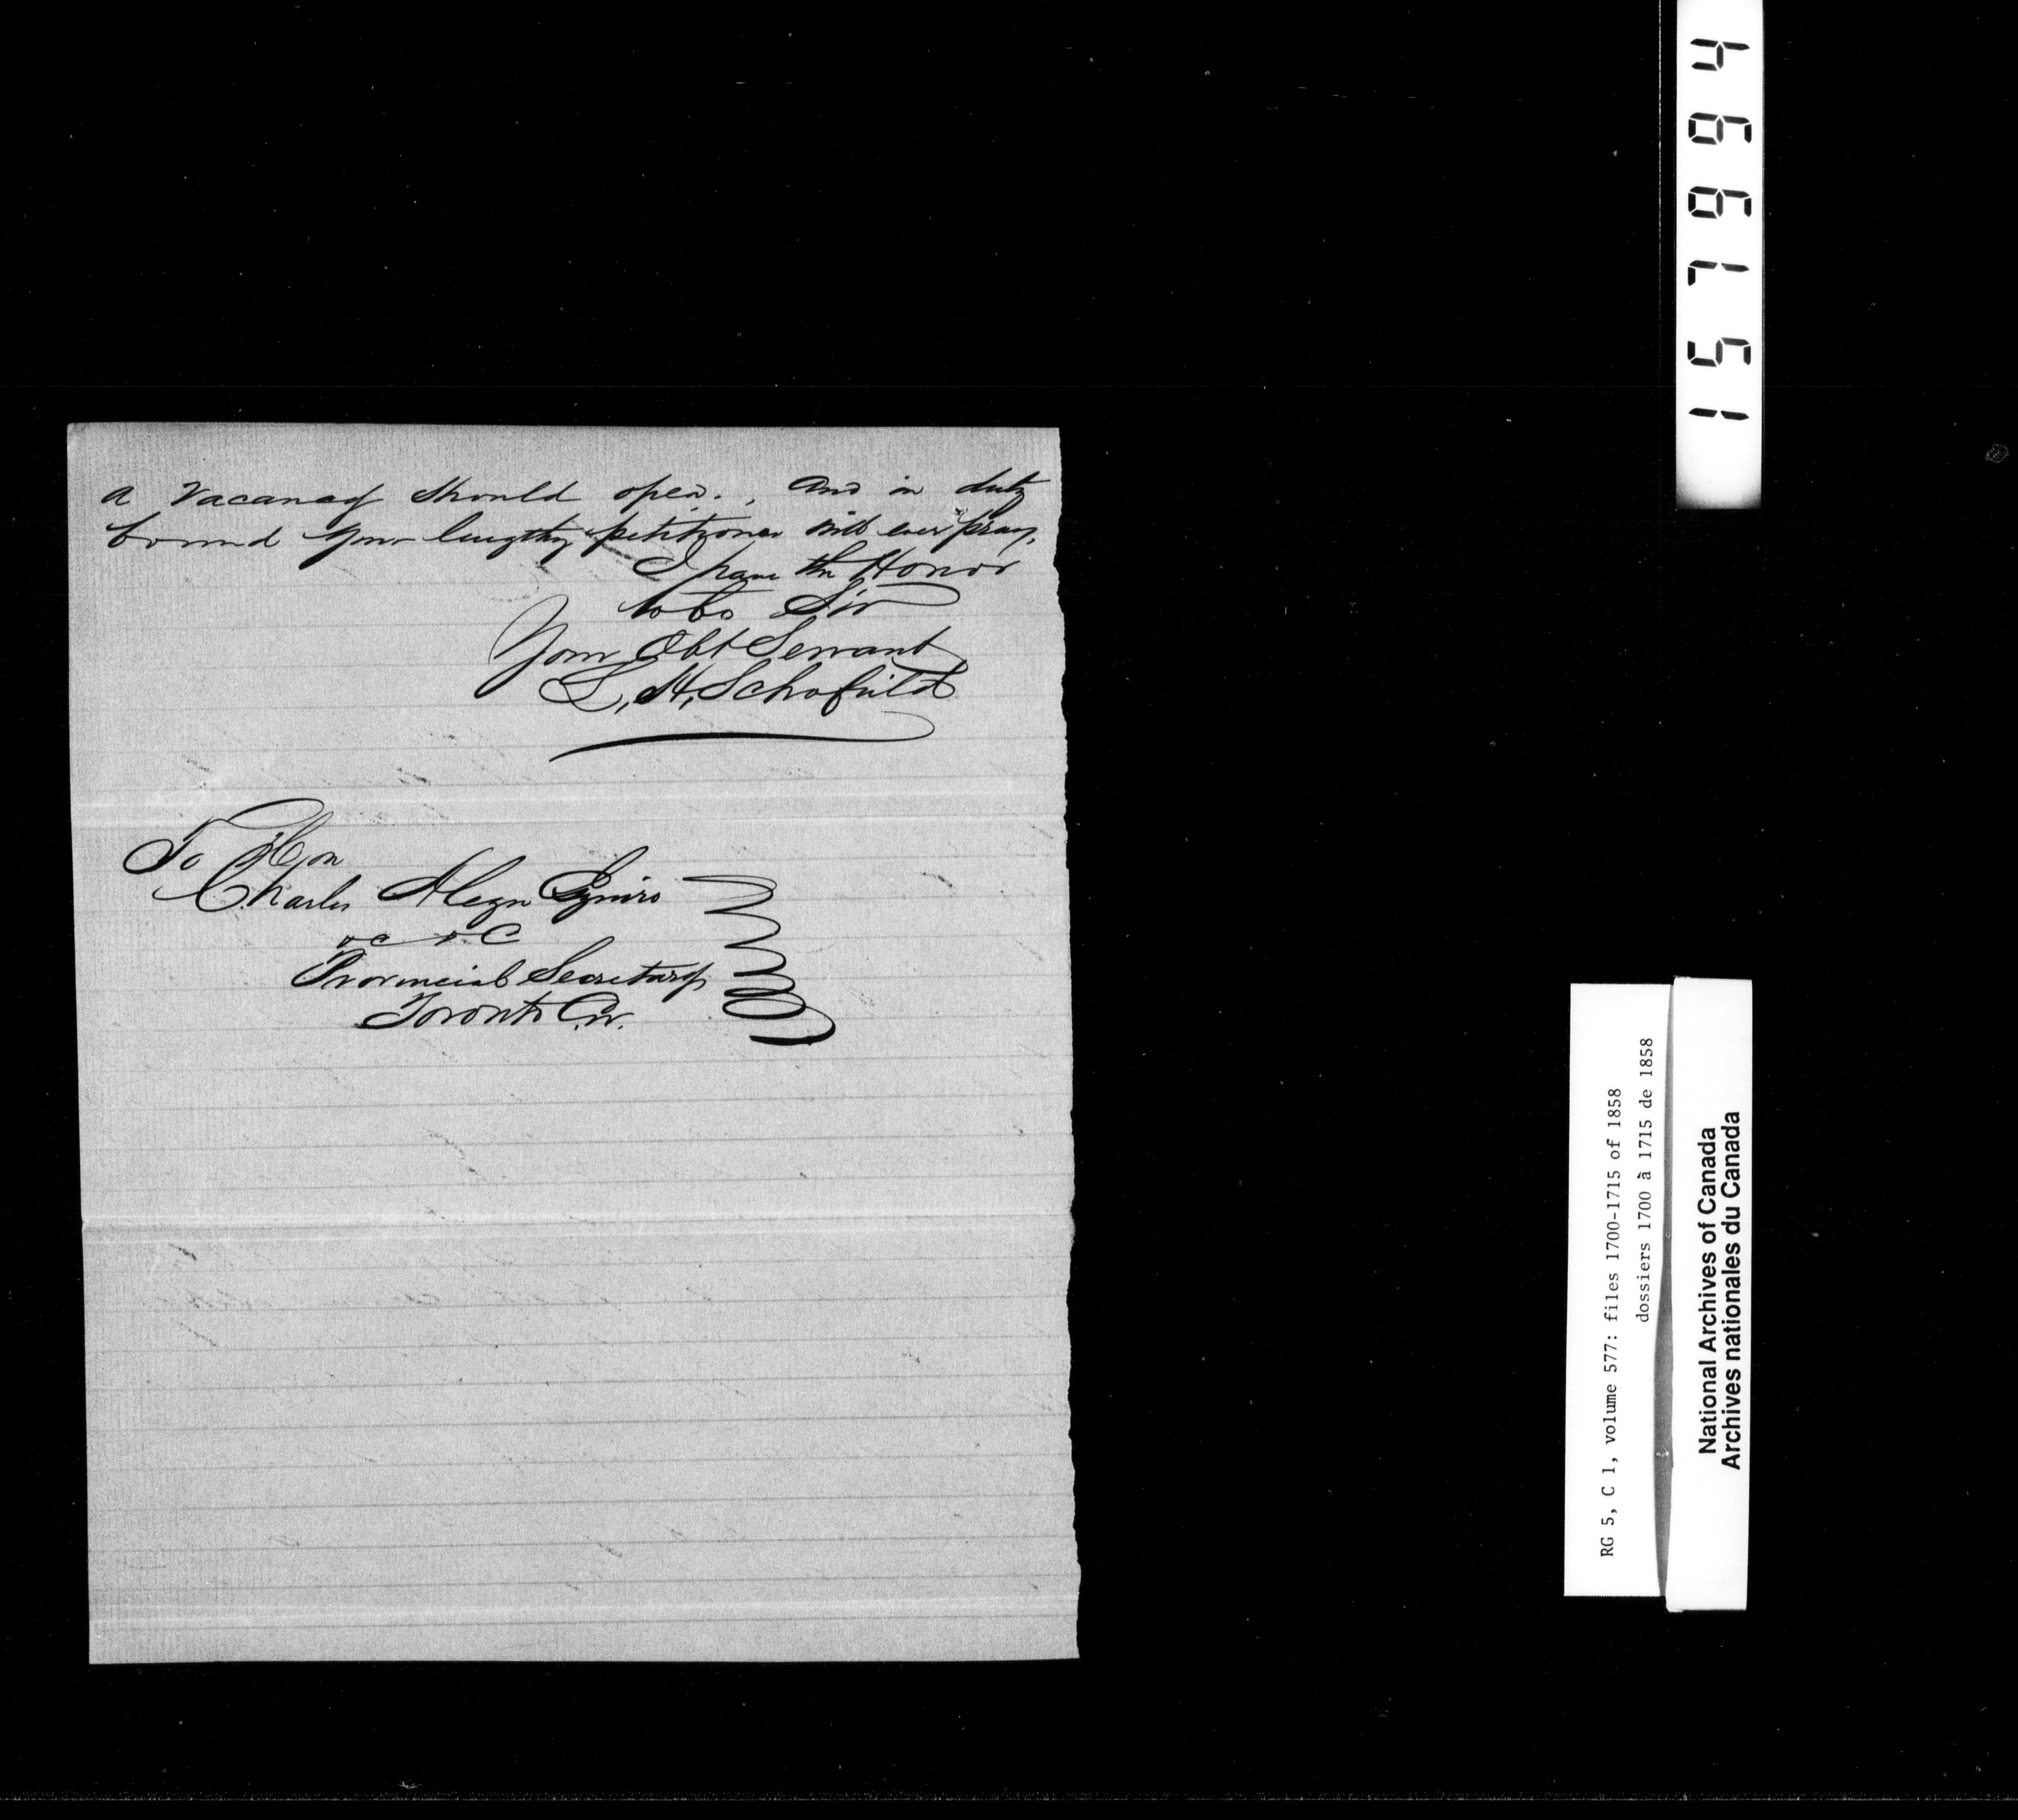 a vacancy should open., and in duty
bound your lengthy petitioner will ever pray,
I have the Honor
to be Sir
Your Obt Servant
L, H, Schofield
To Hon
Charles Alleyn Esquire
&c &c
Provincial Secretary
Toronto C.W.
151994
RG 5, C 1, volume 577: files 1700-1715 of 1858
dossiers 1700 à 1715 de 1858
National Archives of Canada
Archives nationales du Canada